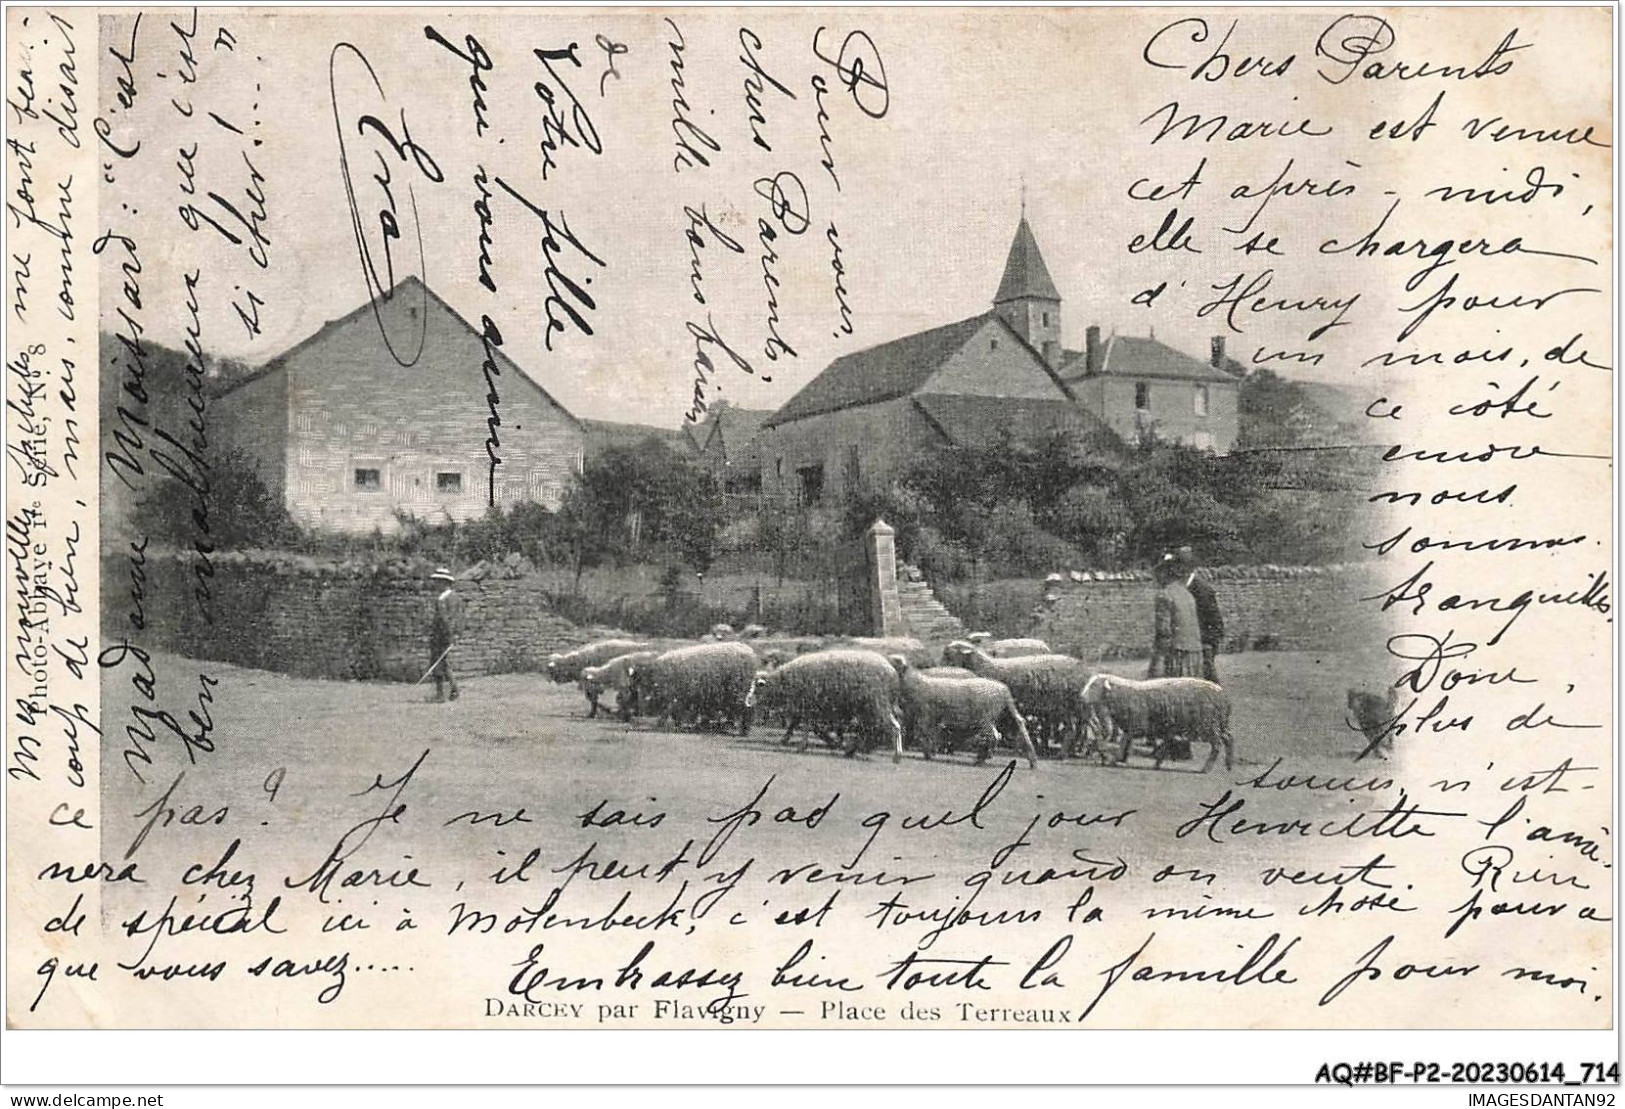 Chers Parents
Marie est venue
cet après-midi,
elle se chargera
d'Henry pour
un mois, de
ce côté
encore
nous
sommes
tranquilles.
Donc,
plus de
soucis, n'est-
ce pas? Je ne sais pas quel jour Henriette l'amè-
nera chez Marie, il peut y venir quand on veut. Rien
de spécial ici à Molenbeek, c'est toujours la même chose
que vous savez.....
Embrassez bien toute la famille pour moi.
Mes nouvelles me font beau-
coup de bien, mais, comme disait
Madame Moissard: "C'est
ben malheureux que c'est
si cher!...."
Pour vous,
chers Parents,
mille bons baisers
de
Votre fille
qui vous aime
Eva
Photo-Abbaye 1re Série, No 8
DARCEY par Flavigny — Place des Terreaux
AQ#BF-P2-20230614_714
IMAGESDANTAN92